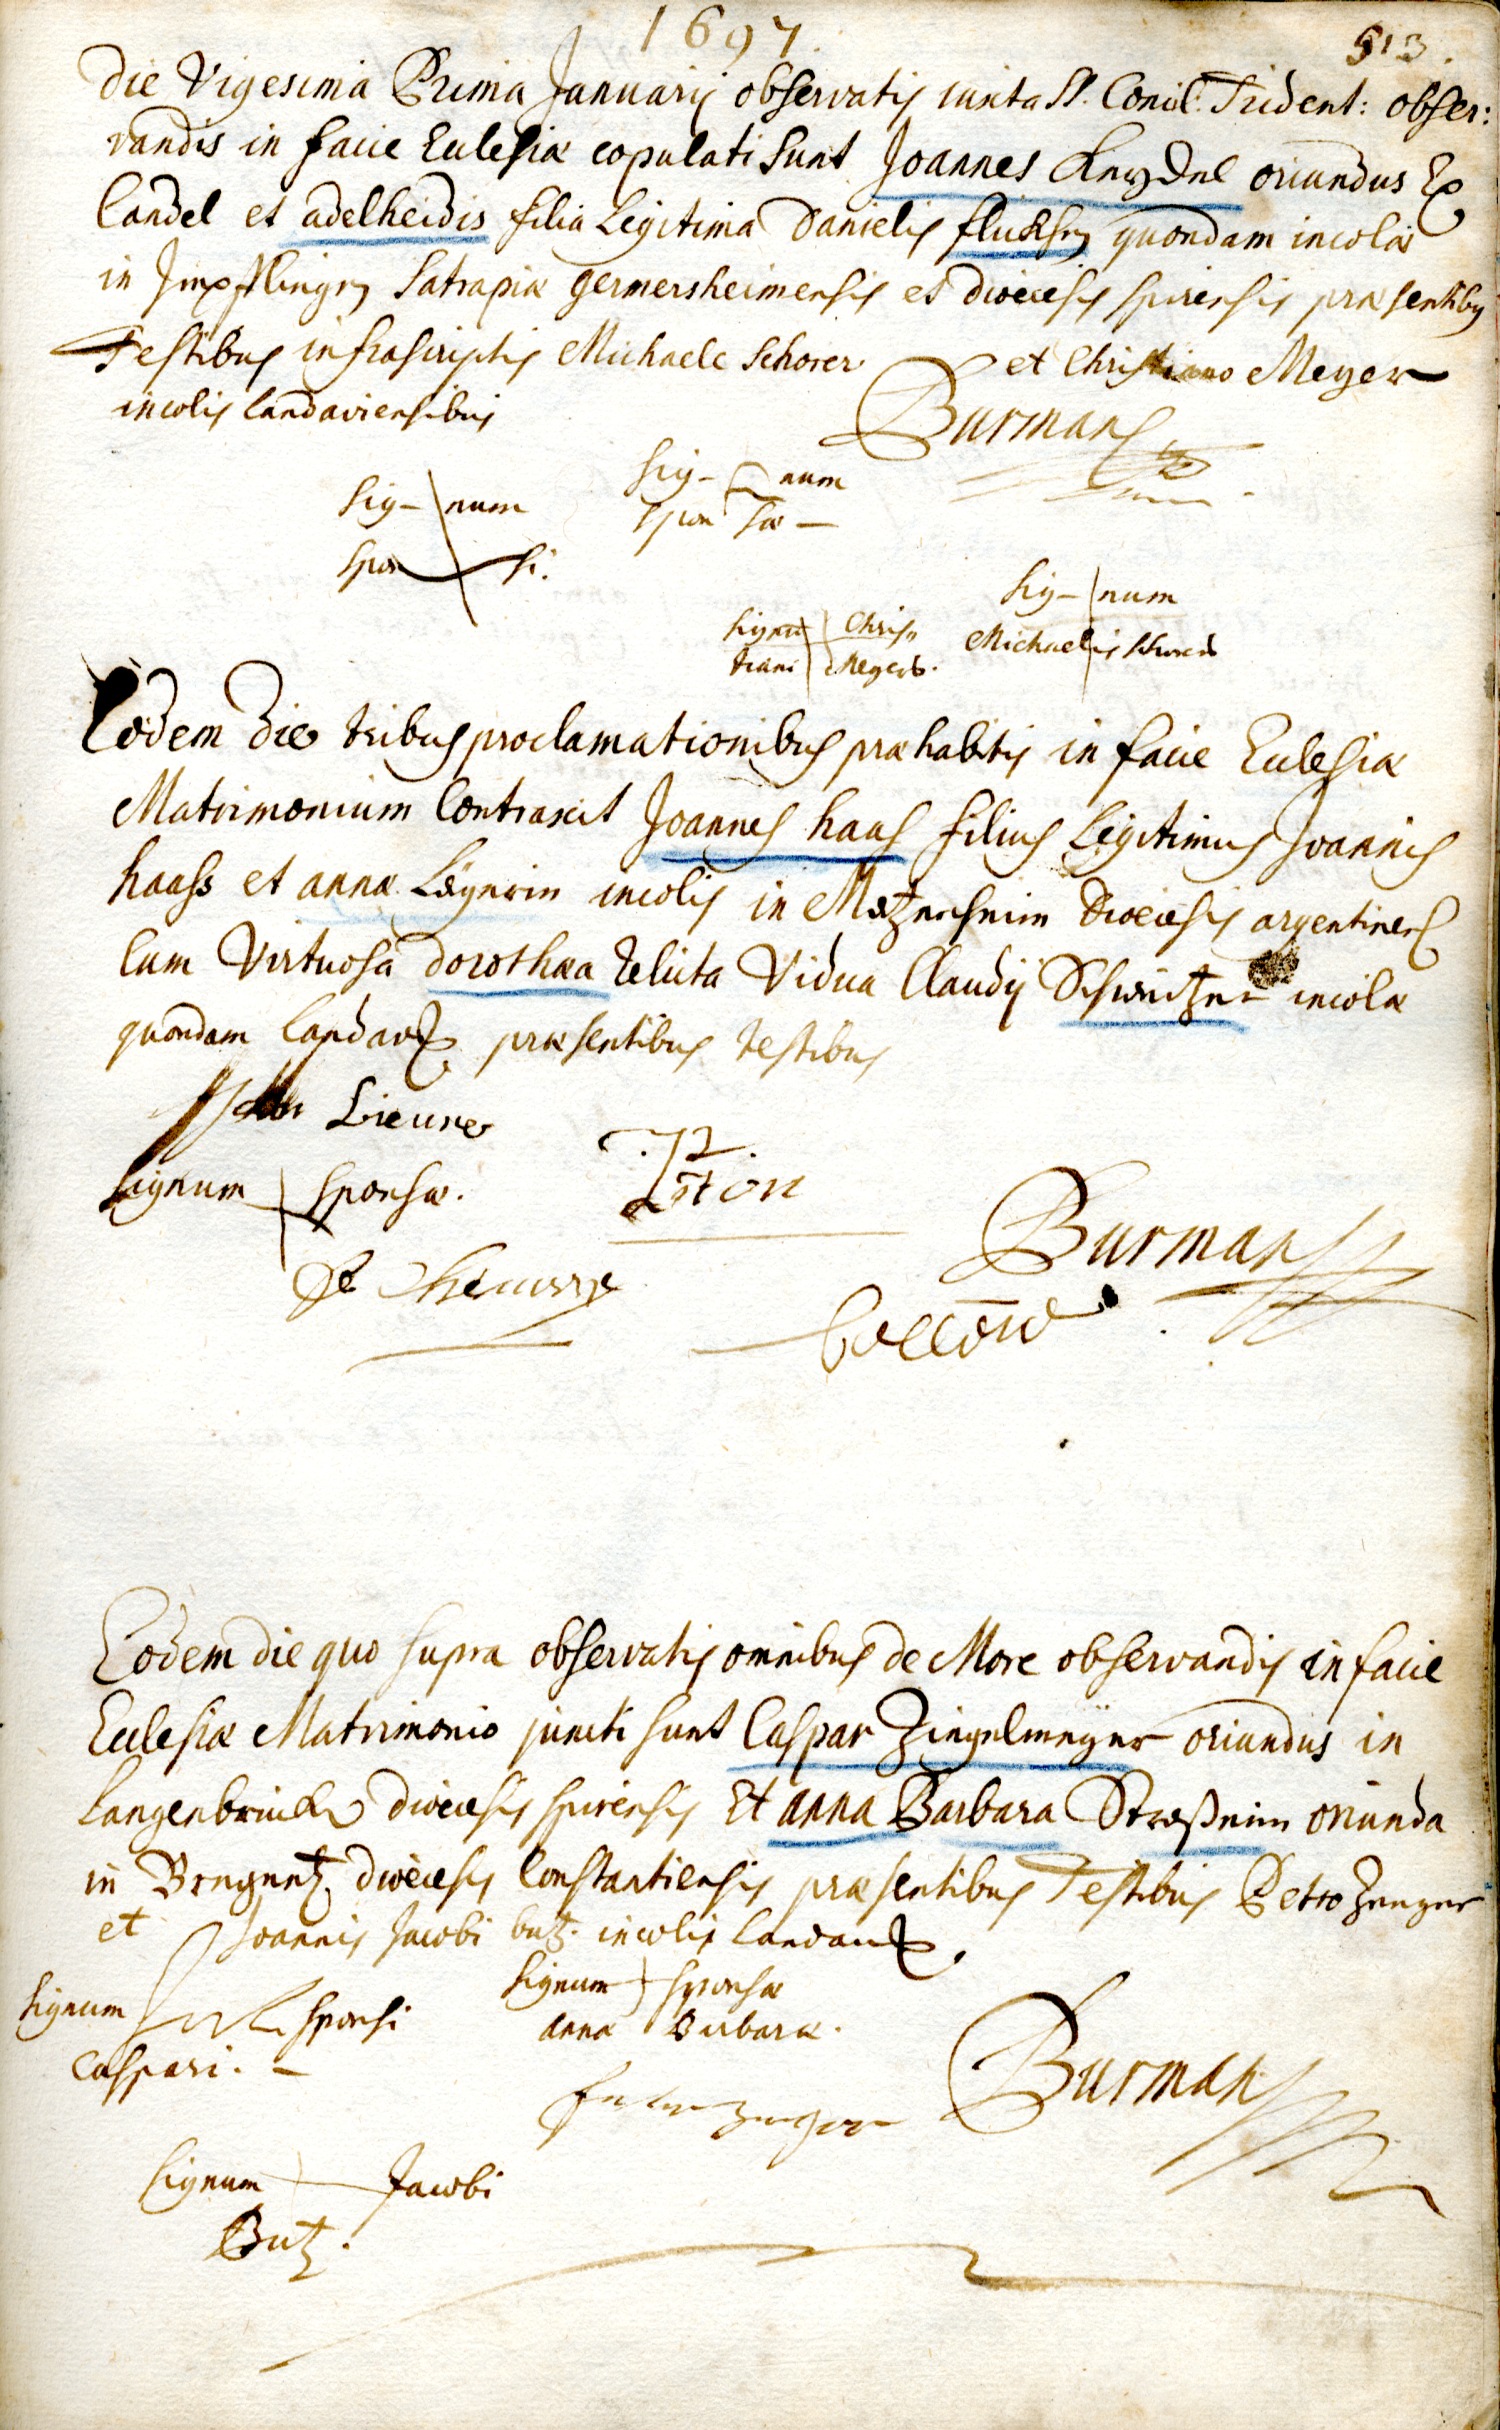 1697.
513.
Die Vigesima Prima Januarij observatis iuxta SS. Concil. Trident: obser:
vandis in facie Ecclesiæ copulati sunt Joannes oriundus Ex
Candel et adelheidis filia Legitima Danielis quondam incolæ
in Impflingen Satrapiæ germersheimensis et diœcesis spirensis præsentibus
Testibus infrascriptis Michaele Schorer et Christiano Meyer
incolis landaviensibus
Burman
Sig- num
spon sæ
Sig- num
spon si.
Sig- num
Michaelis Schorers
Signū Chris,,
tiani Meyers.
Eodem Die tribus proclamationibus præhabitis in facie Ecclesiæ
Matrimonium Contraxit Joannes haas filius Legitimus Joannis
haass et annæ incolis in Diœcesis argentinens
Cum Virtuosa dorothæa relicta Vidua Claudij Schweitzer incolæ
quondam Landavij præsentibus testibus
Signum sponsæ.
Burman
Eodem die quo supra observatis omnibus de More observandis in facie
Ecclesiæ Matrimonio juncti sunt Caspar Ziegelmeÿer oriundus in
Langenbrücken diœcesis spirensis Et anna Barbara oriunda
in Bregentz diœcesis Constantiensis præsentibus Testibus Petro Zenger
et Joannis Jacobi butz. incolis Landavij.
Signum sponsi
Caspari.
Signum sponsæ
anna Barbaræ.
Burman
Signum Jacobi
Butz.